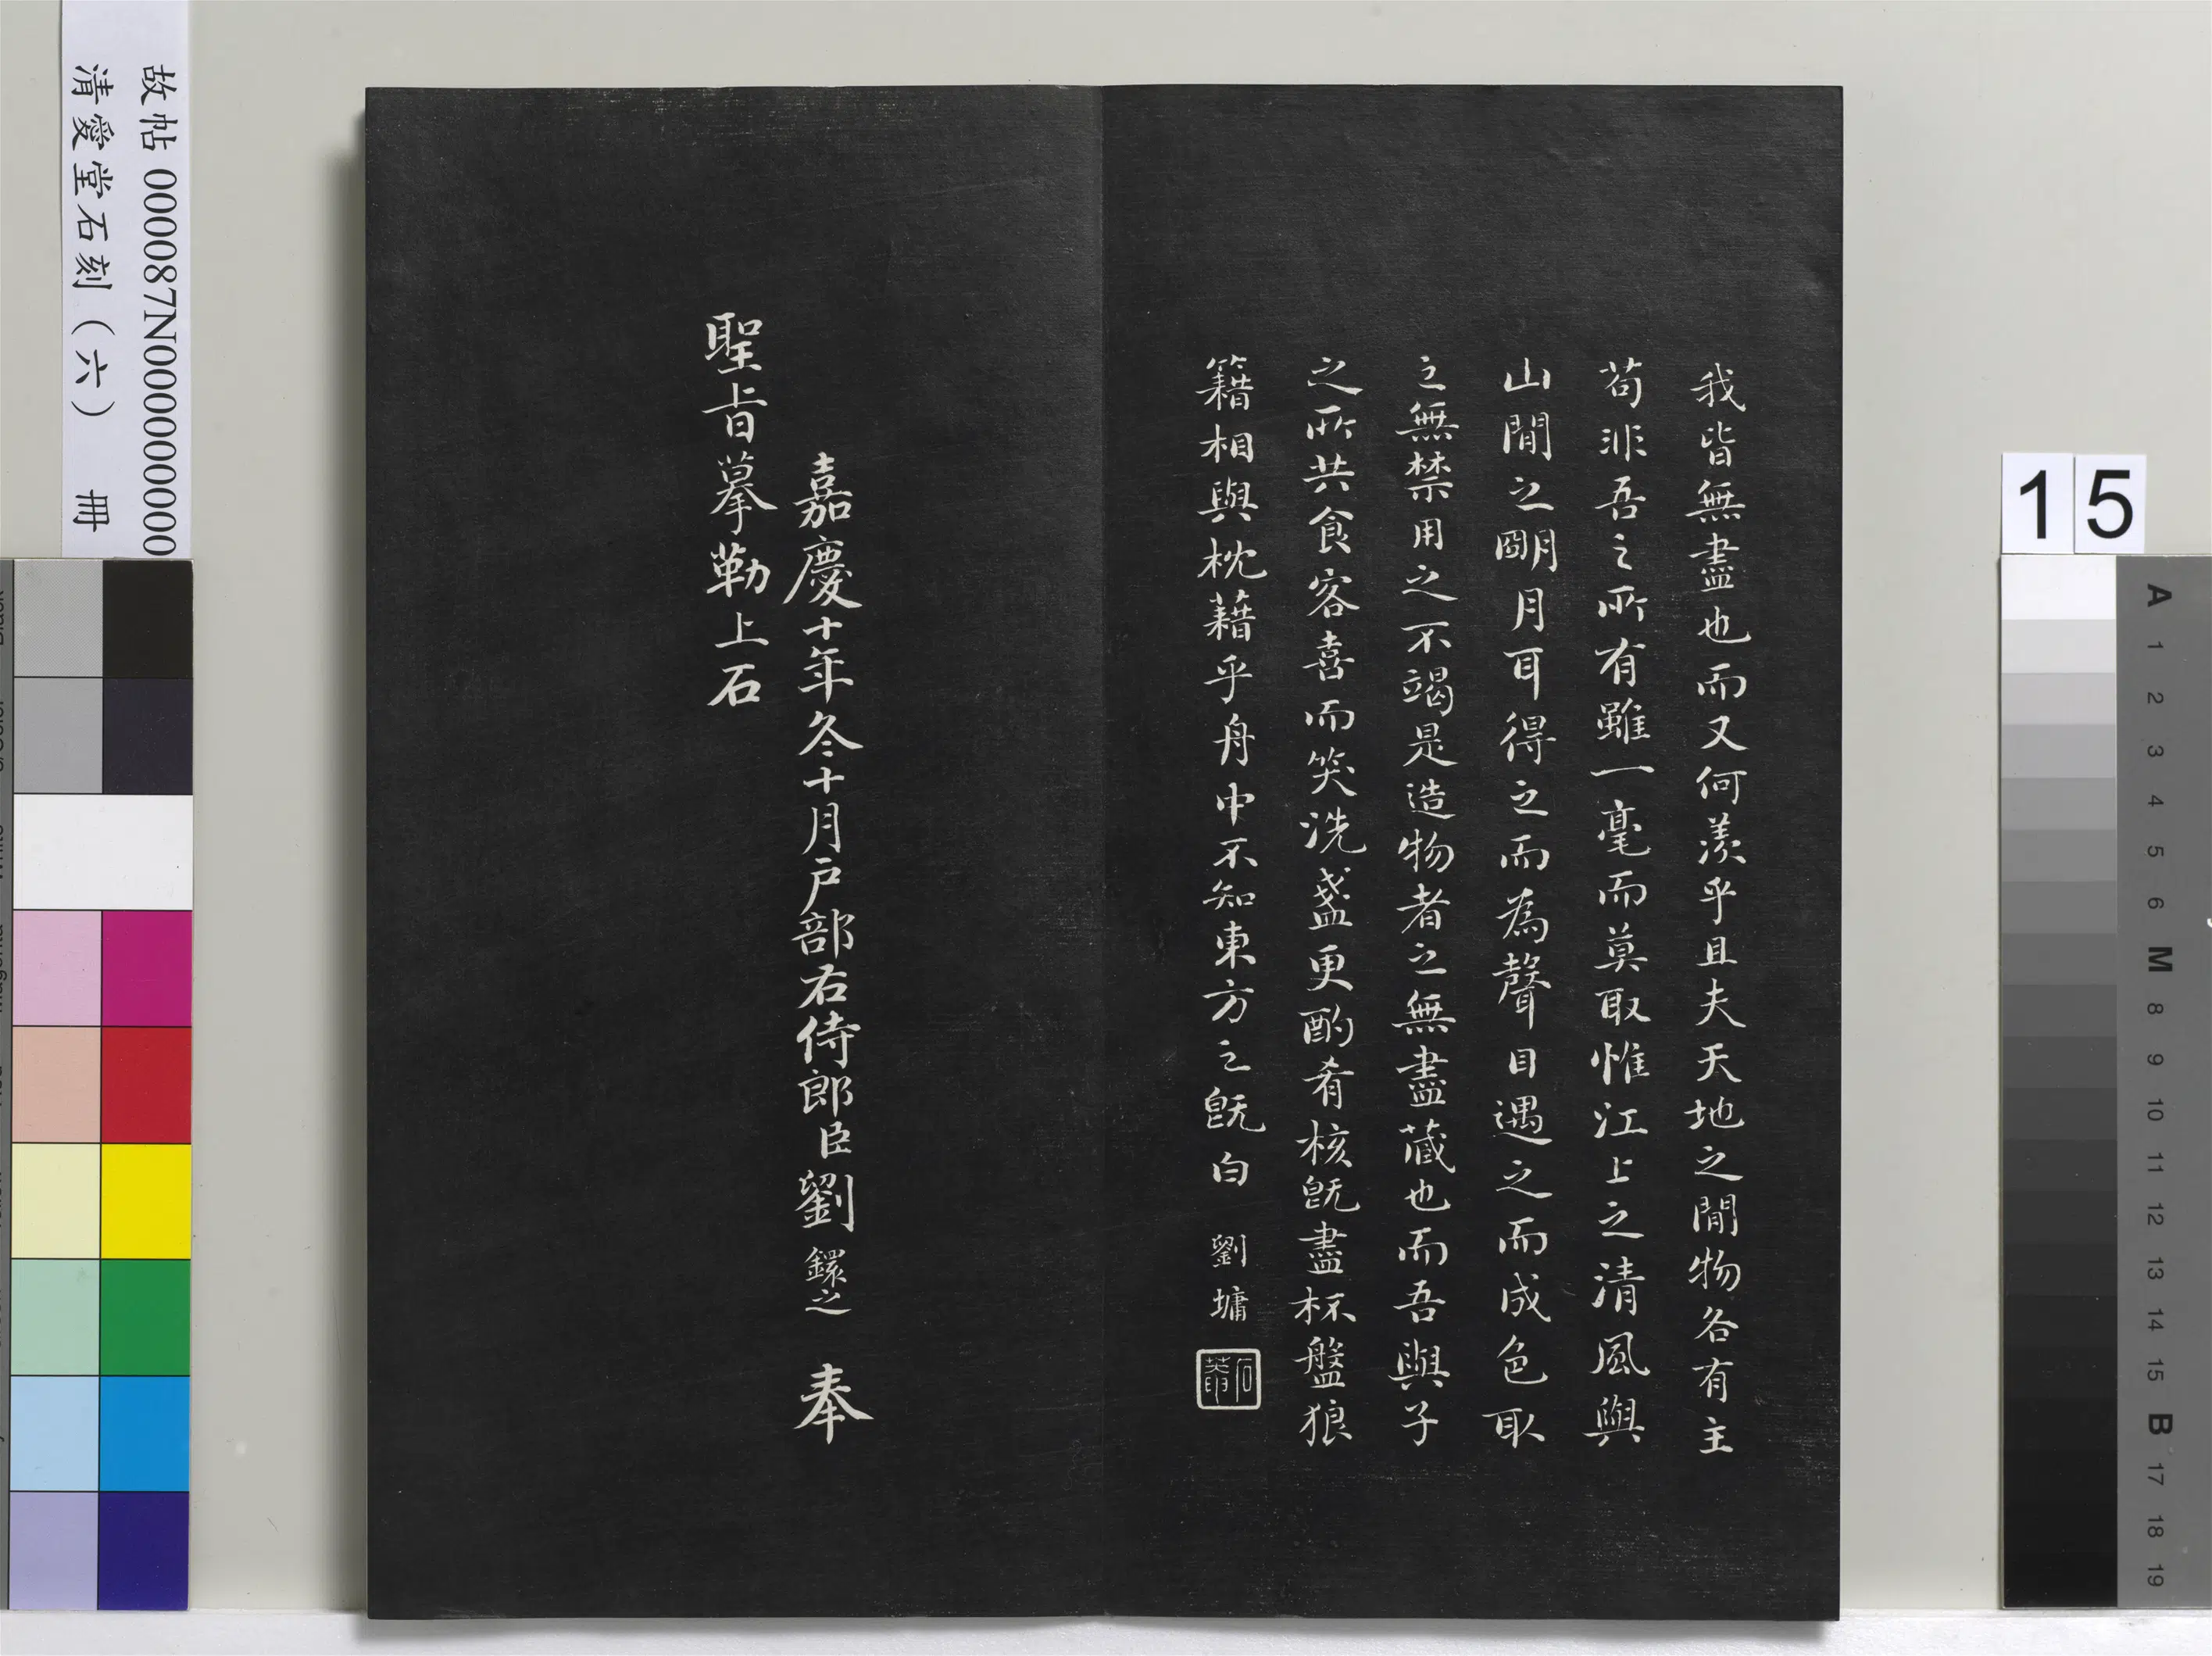 我皆無盡也而又何羨乎且夫天地之間物各有主
苟非吾之所有雖一毫而莫取惟江上之清風與
山間之明月耳得之而為聲目遇之而成色取
之無禁用之不竭是造物者之無盡藏也而吾與子
之所共食客喜而笑洗盞更酌肴核既盡杯盤狼
籍相與枕藉乎舟中不知東方之既白 劉墉
石菴
嘉慶十年冬十月戶部右侍郎臣劉鐶之 奉
聖旨摹勒上石
故帖 000087N000000000
清愛堂石刻（六） 冊
15
A
1
2
3
4
5
6
M
8
9
10
11
12
13
14
15
B
17
18
19